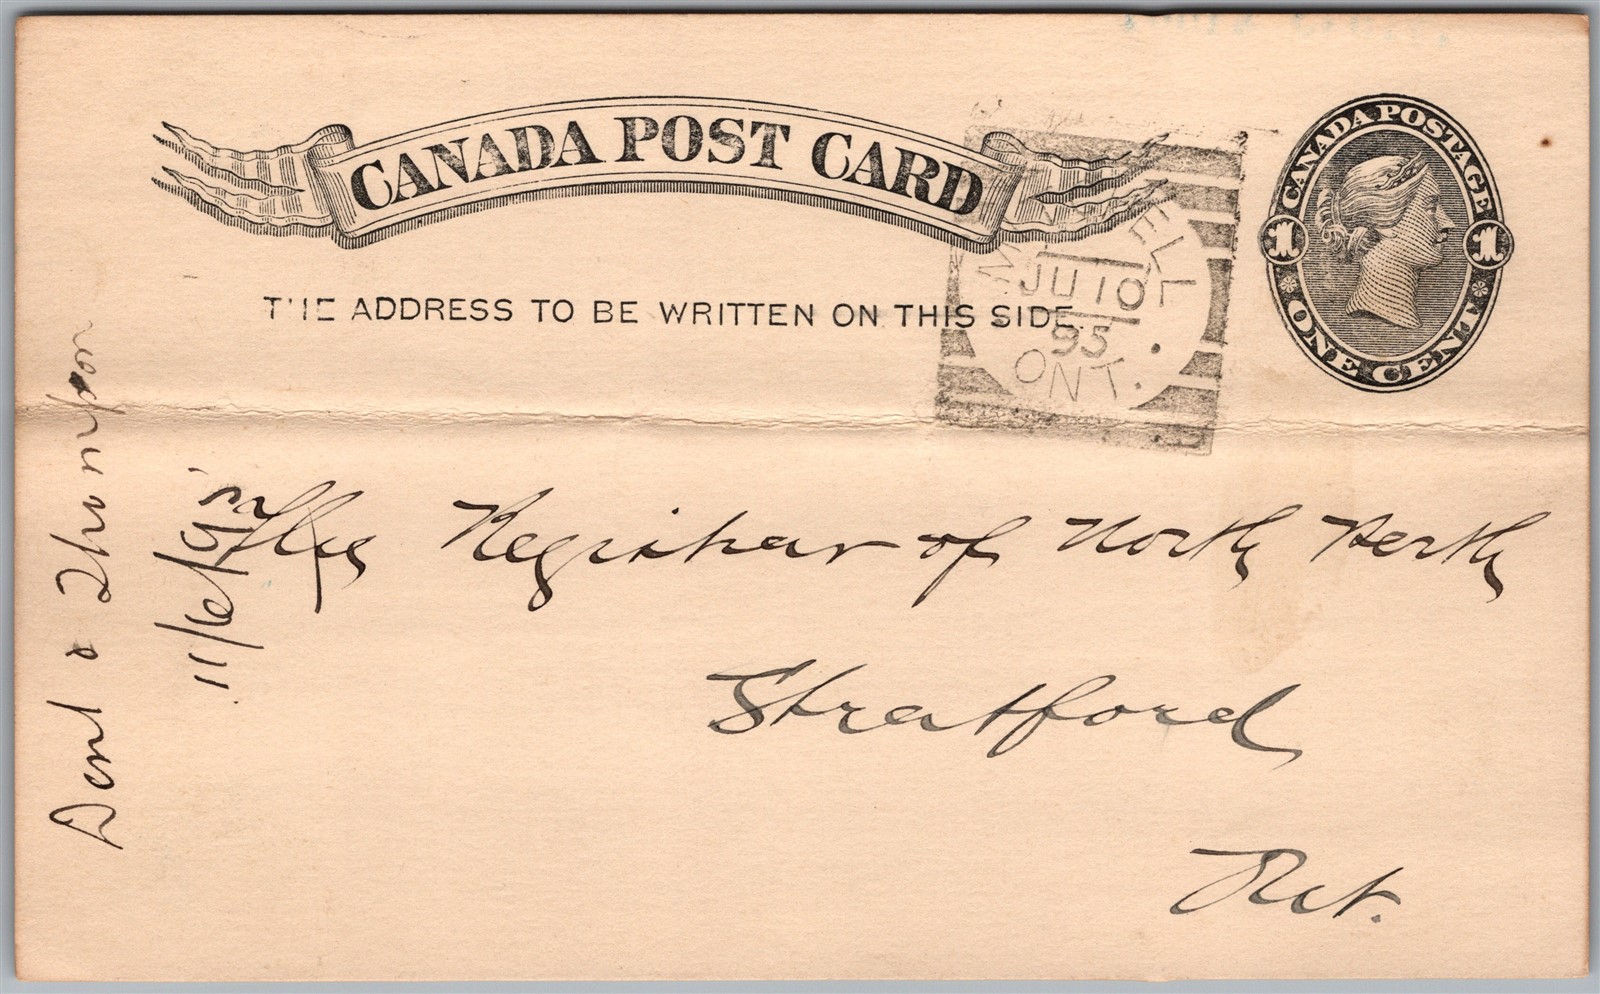 CANADA POST CARD
CANADA POSTAGE
1 1
ONE CENT
THE ADDRESS TO BE WRITTEN ON THIS SIDE.
JU 10
95
ONT.
The Registrar of North Perth
Stratford
Ont.
Dent & Thompson
11/6/95